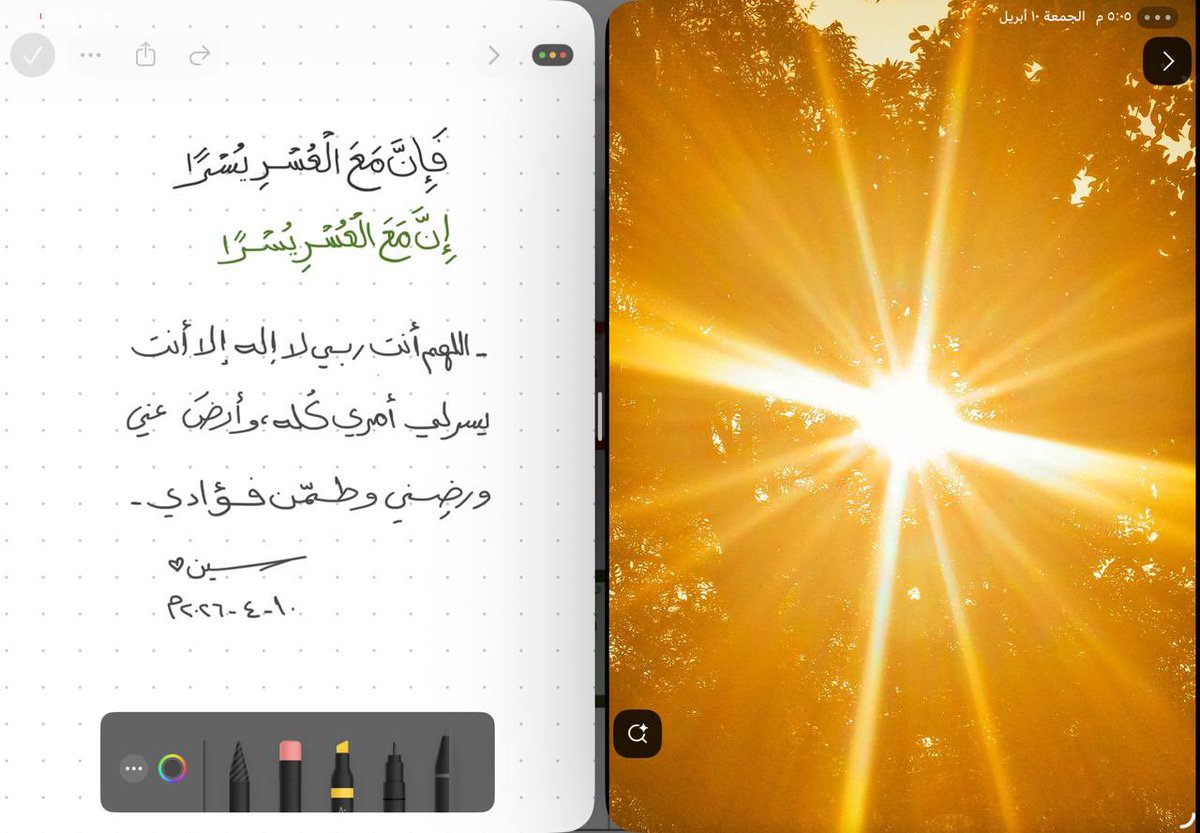 ٥:٠٥ م الجمعة ١٠ أبريل
فَإِنَّ مَعَ الْعُسْرِ يُسْرًا
إِنَّ مَعَ الْعُسْرِ يُسْرًا
- اللهم أنت ربي لا إله إلا أنت
يسر لي أمري كُله، وأرضَ عني
ورضِني وطمّن فؤادي -
سين♡
١٠-٤-٢٠٢٦م